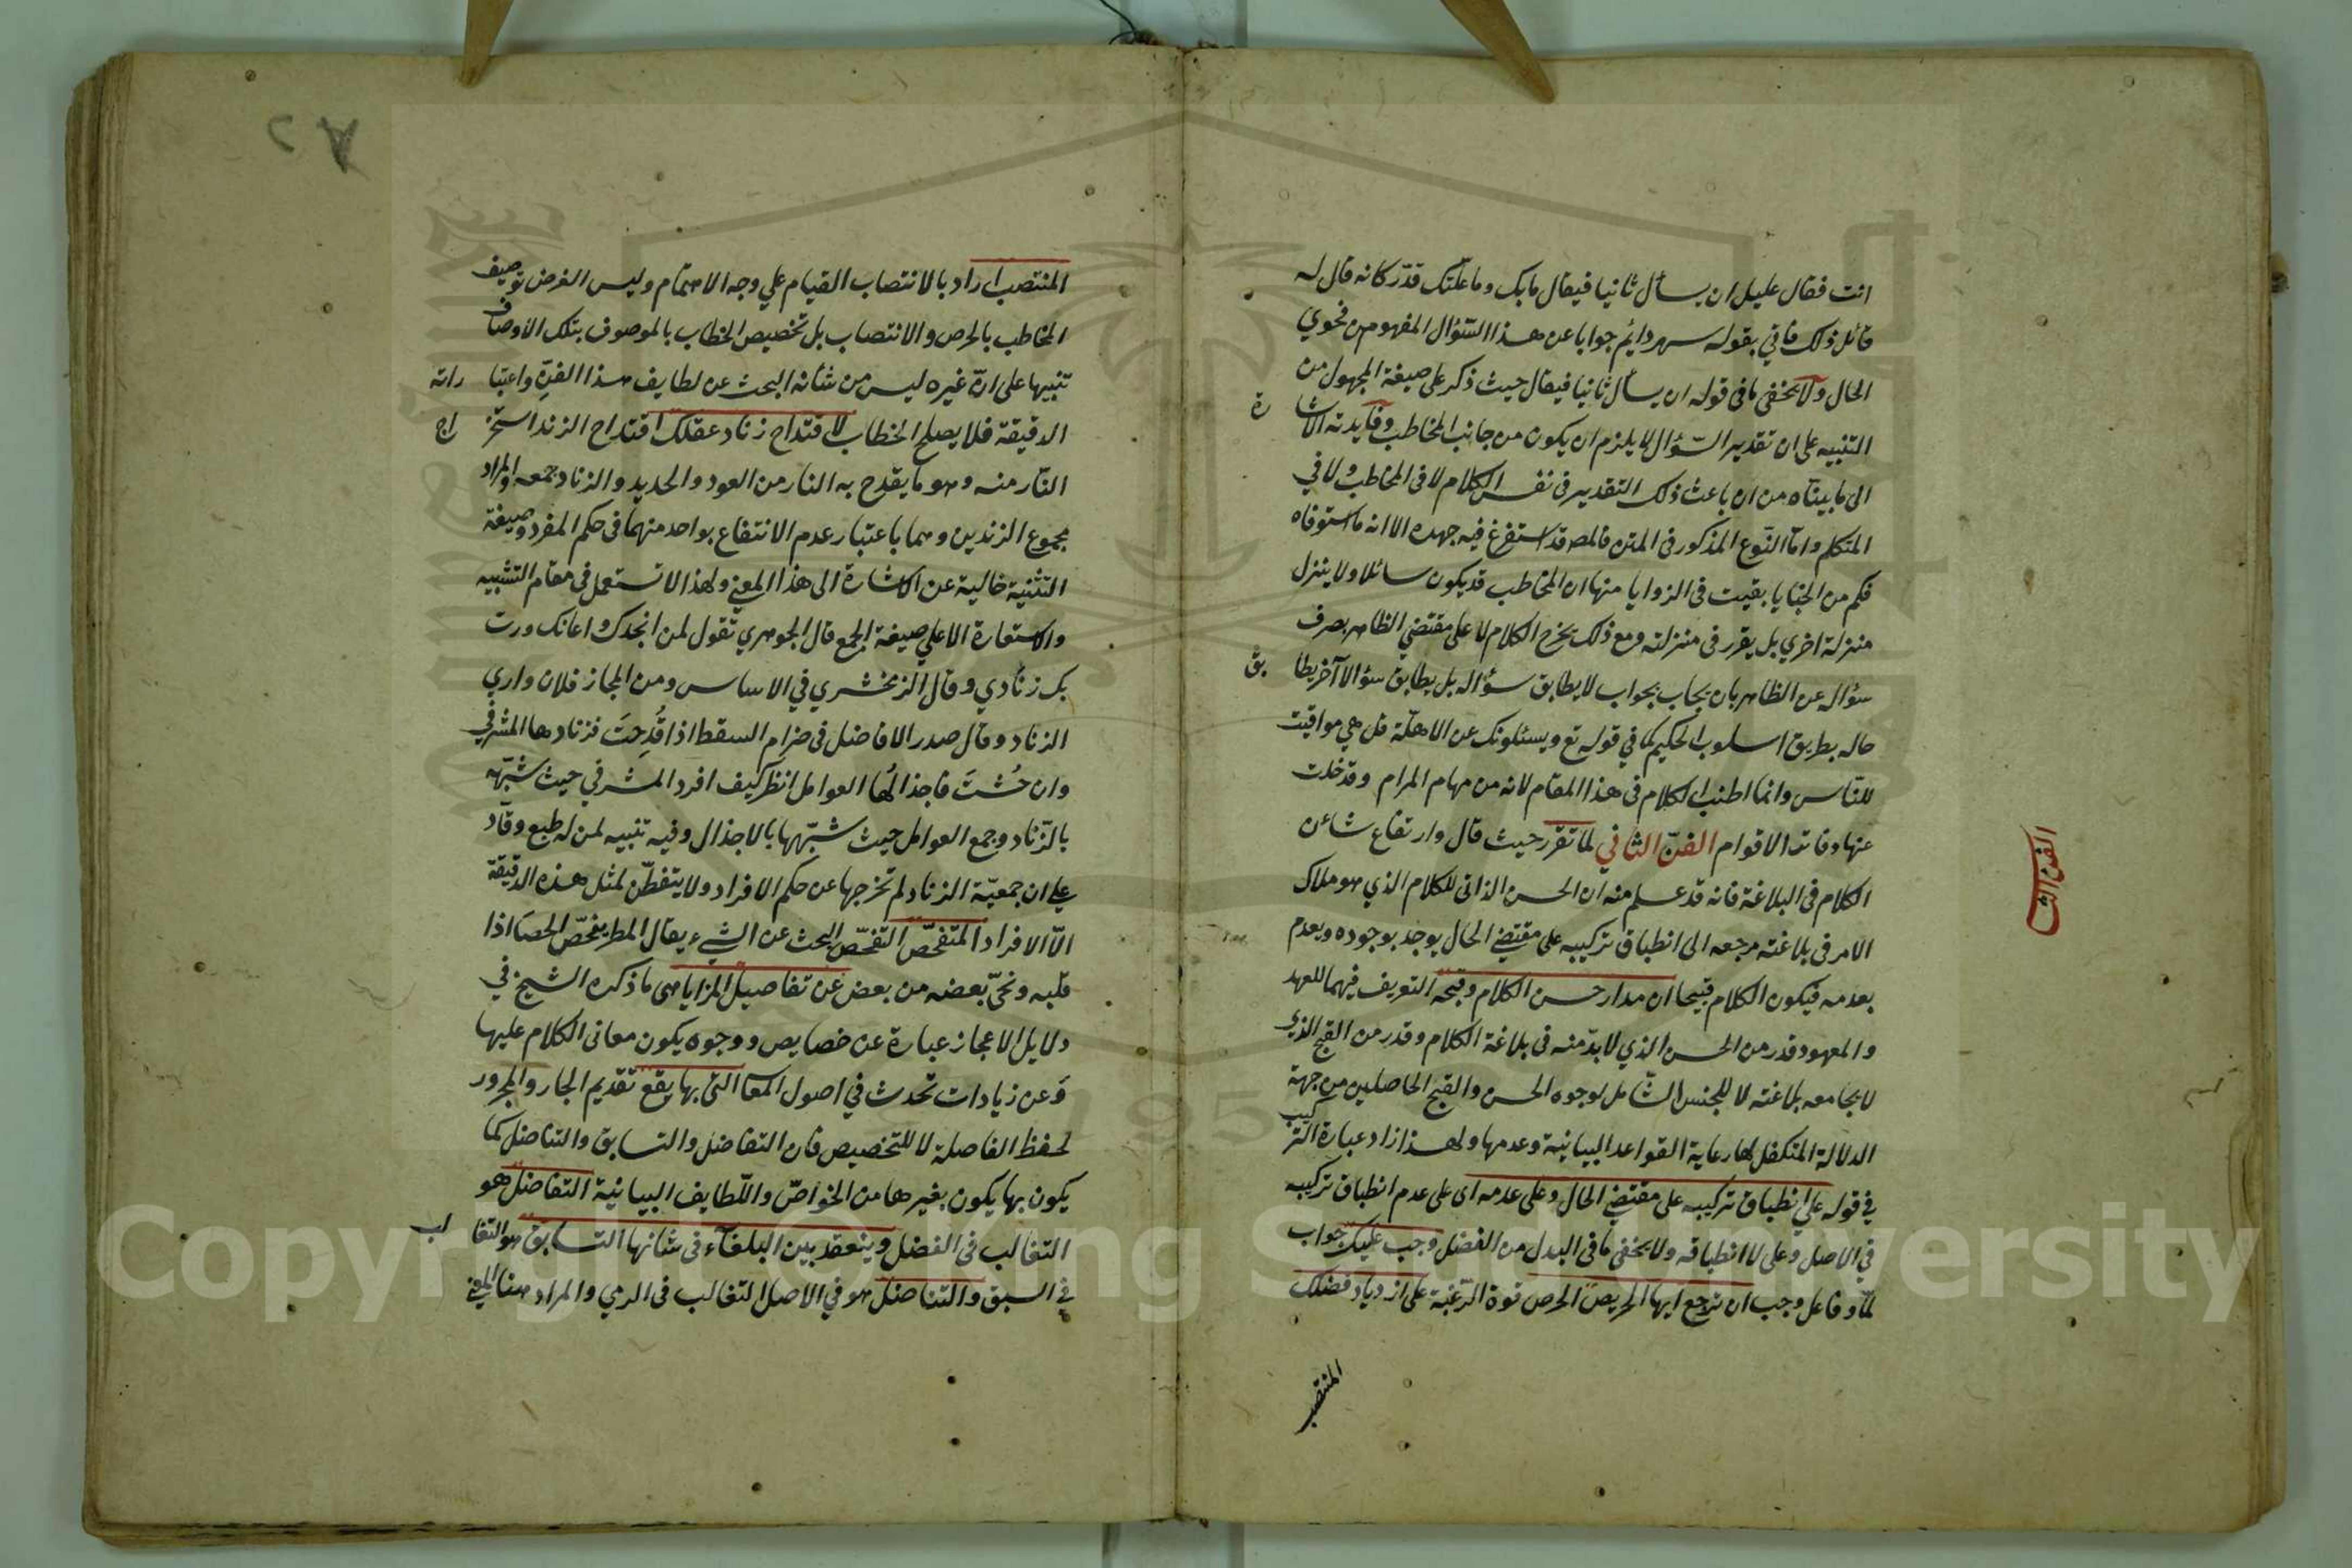 انت فقال عليل ان يسأل ثانيا فيقال ما بك وما علتك قدّر كانه قال له
قائل ذلك فاتي بقوله سهر دائم جوابا عن هذا السّؤال المفهوم من فحوي
الحال ولا يخفي ما في قوله ان يسأل ثانيا فيقال حيث ذكر علي صيغة المجهول من
التنبيه علي ان تقدير السّؤال لا يلزم ان يكون من جانب المخاطب وفايدته الاشا
رة
الي ما بيناه من ان باعث ذلك التقدير في نفس الكلام لا في المخاطب ولا في
المتكلم وامّا النّوع المذكور في المتن فالمص قد استفرغ فيه جهده الا انه ما استوفاه
فكم من الخبايا بقيت في الزوايا منها ان المخاطب قد يكون سائلا ولا ينزل
منزلة اخري بل يقرر في منزلته ومع ذلك يخرج الكلام لا علي مقتضي الظاهر بصرف
سؤاله عن الظاهر بان يجاب بجواب لا يطابق سؤاله بل يطابق سؤالا آخر يطا
بق
حاله بطريق اسلوب الحكيم كما في قوله تع ويسئلونك عن الاهلّة قل هي مواقيت
للنّاس وانما اطنب الكلام في هذا المقام لانه من مهام المرام وقد خلت
عنها دفاتر الاقوام الفنّ الثاني لما تقرر حيث قال وارتفاع شان
الفن الثا
الكلام في البلاغة فانه قد علم منه ان الحسن الذاتي للكلام الذي هو ملاك
الامر في بلاغته مرجعه الي انطباق تركيبه علي مقتضي الحال يوجد بوجوده ويعدم
بعدمه فيكون الكلام قبيحا ان مدار حسن الكلام وقبحه التعريف فيهما للعهد
والمعهود قدر من الحسن الذي لا بدّ منه في بلاغة الكلام وقدر من القبح الذي
لا يجامعه بلاغته لا للجنس الشّامل لوجوه الحسن والقبح الحاصلين من جهة
الدلالة المتكفل لها رعاية القواعد البيانية وعدمها ولهذا زاد عبارة التركيب
في قوله علي انطباق تركيبه علي مقتضي الحال وعلي عدمه اي علي عدم انطباق تركيبه
في الاصل وعلي لا انطباقه ولا يخفي ما في البدل من الفضل وجب عليك جواب
لمّا وفاعل وجب ان ترجع ايها الحريص الحرص قوة الرّغبة علي ازدياد فضلك
المنتصب
المنتصب اراد بالانتصاب القيام علي وجه الاهتمام وليس الغرض توصيف
المخاطب بالحرص والانتصاب بل تخصيص الخطاب بالموصوف بتلك الاوصاف
تنبيها علي انّ غيره ليس من شانه البحث عن لطايف هذا الفنّ واعتبا
راته
الدقيقة فلا يصلح الخطاب لاقتداح زناد عقلك اقتداح الزند استخر
اج
النّار منه وهو ما يقدح به النار من العود والحديد والزناد جمعه والمراد
مجموع الزندين وهما باعتبار عدم الانتفاع بواحد منهما في حكم المفرد وصيغة
التثنية خالية عن الاشارة الي هذا المعني ولهذا لا تستعمل في مقام التشبيه
والاستعارة الا علي صيغة الجمع قال الجوهري تقول لمن انجدك واعانك ورت
بك زنادي وقال الزمخشري في الاساس ومن المجاز فلان واري
الزناد وقال صدر الافاضل في ضرام السقط اذا قُدِحتَ فزنادها المشرفي
وان حُشتَ فاجذالُها العوامل انظر كيف افرد المشرفي حيث شبّهه
بالزّناد وجمع العوامل حيث شبّهها بالاجذال وفيه تنبيه لمن له طبع وقّاد
علي ان جمعيّة الزناد لم تخرجها عن حكم الافراد ولا يتفطّن لمثل هذه الدقيقة
الّا الافراد المتفحّص التفحّص البحث عن الشيء يقال المطر يفحّص الحصا اذا
قلبه ونحيّ بعضه من بعض عن تفاصيل المزايا هي ما ذكره الشيخ في
دلايل الاعجاز عبارة عن خصايص ووجوه يكون معاني الكلام عليها
وَعن زيادات تحدث في اصول المعا التي بها يقع تقديم الجار والمجرور
لحفظ الفاصلة لا للتخصيص فان التفاضل والتسابق والتناضل كما
يكون بها يكون بغيرها من الخواصّ واللّطايف البيانية التفاضل هو
التغالب في الفضل وينعقد بين البلغآء في شانها التسابق هو التغا
لب
في السبق والتناضل هو في الاصل التغالب في الرمي والمراد هنا المعني
Copyright © King Saud University